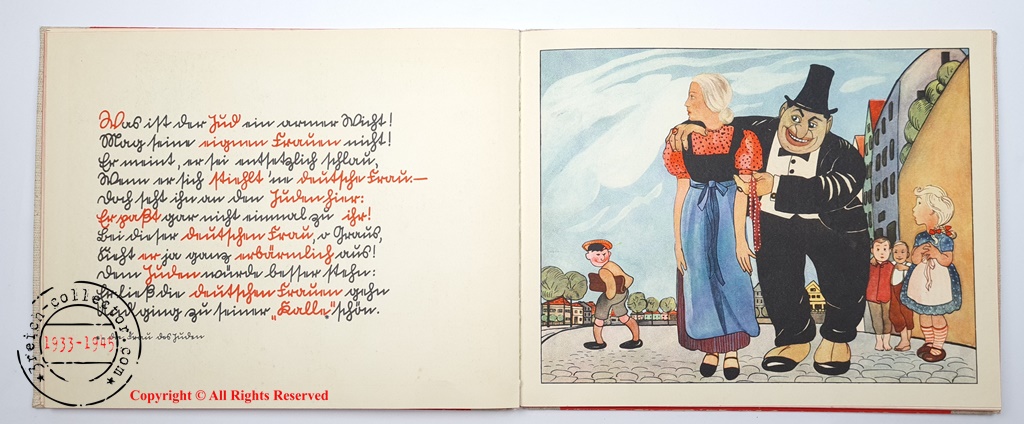 Was ist der Jud ein armer Wicht!
Mag seine eignen Frauen nicht!
Er meint, er sei entsetzlich schlau,
Wenn er sich stiehlt 'ne deutsche Frau.—
Doch seht ihn an den Juden hier:
Er paßt gar nicht einmal zu ihr!
Bei dieser deutschen Frau, o Graus,
Sieht er ja ganz erbärmlich aus!
Dem Juden würde besser stehn:
Er ließ die deutschen Frauen gehn
ging zu seiner „Kalle" schön.
Frau des Juden
3reich-collector.com
1933-1945
Copyright © All Rights Reserved